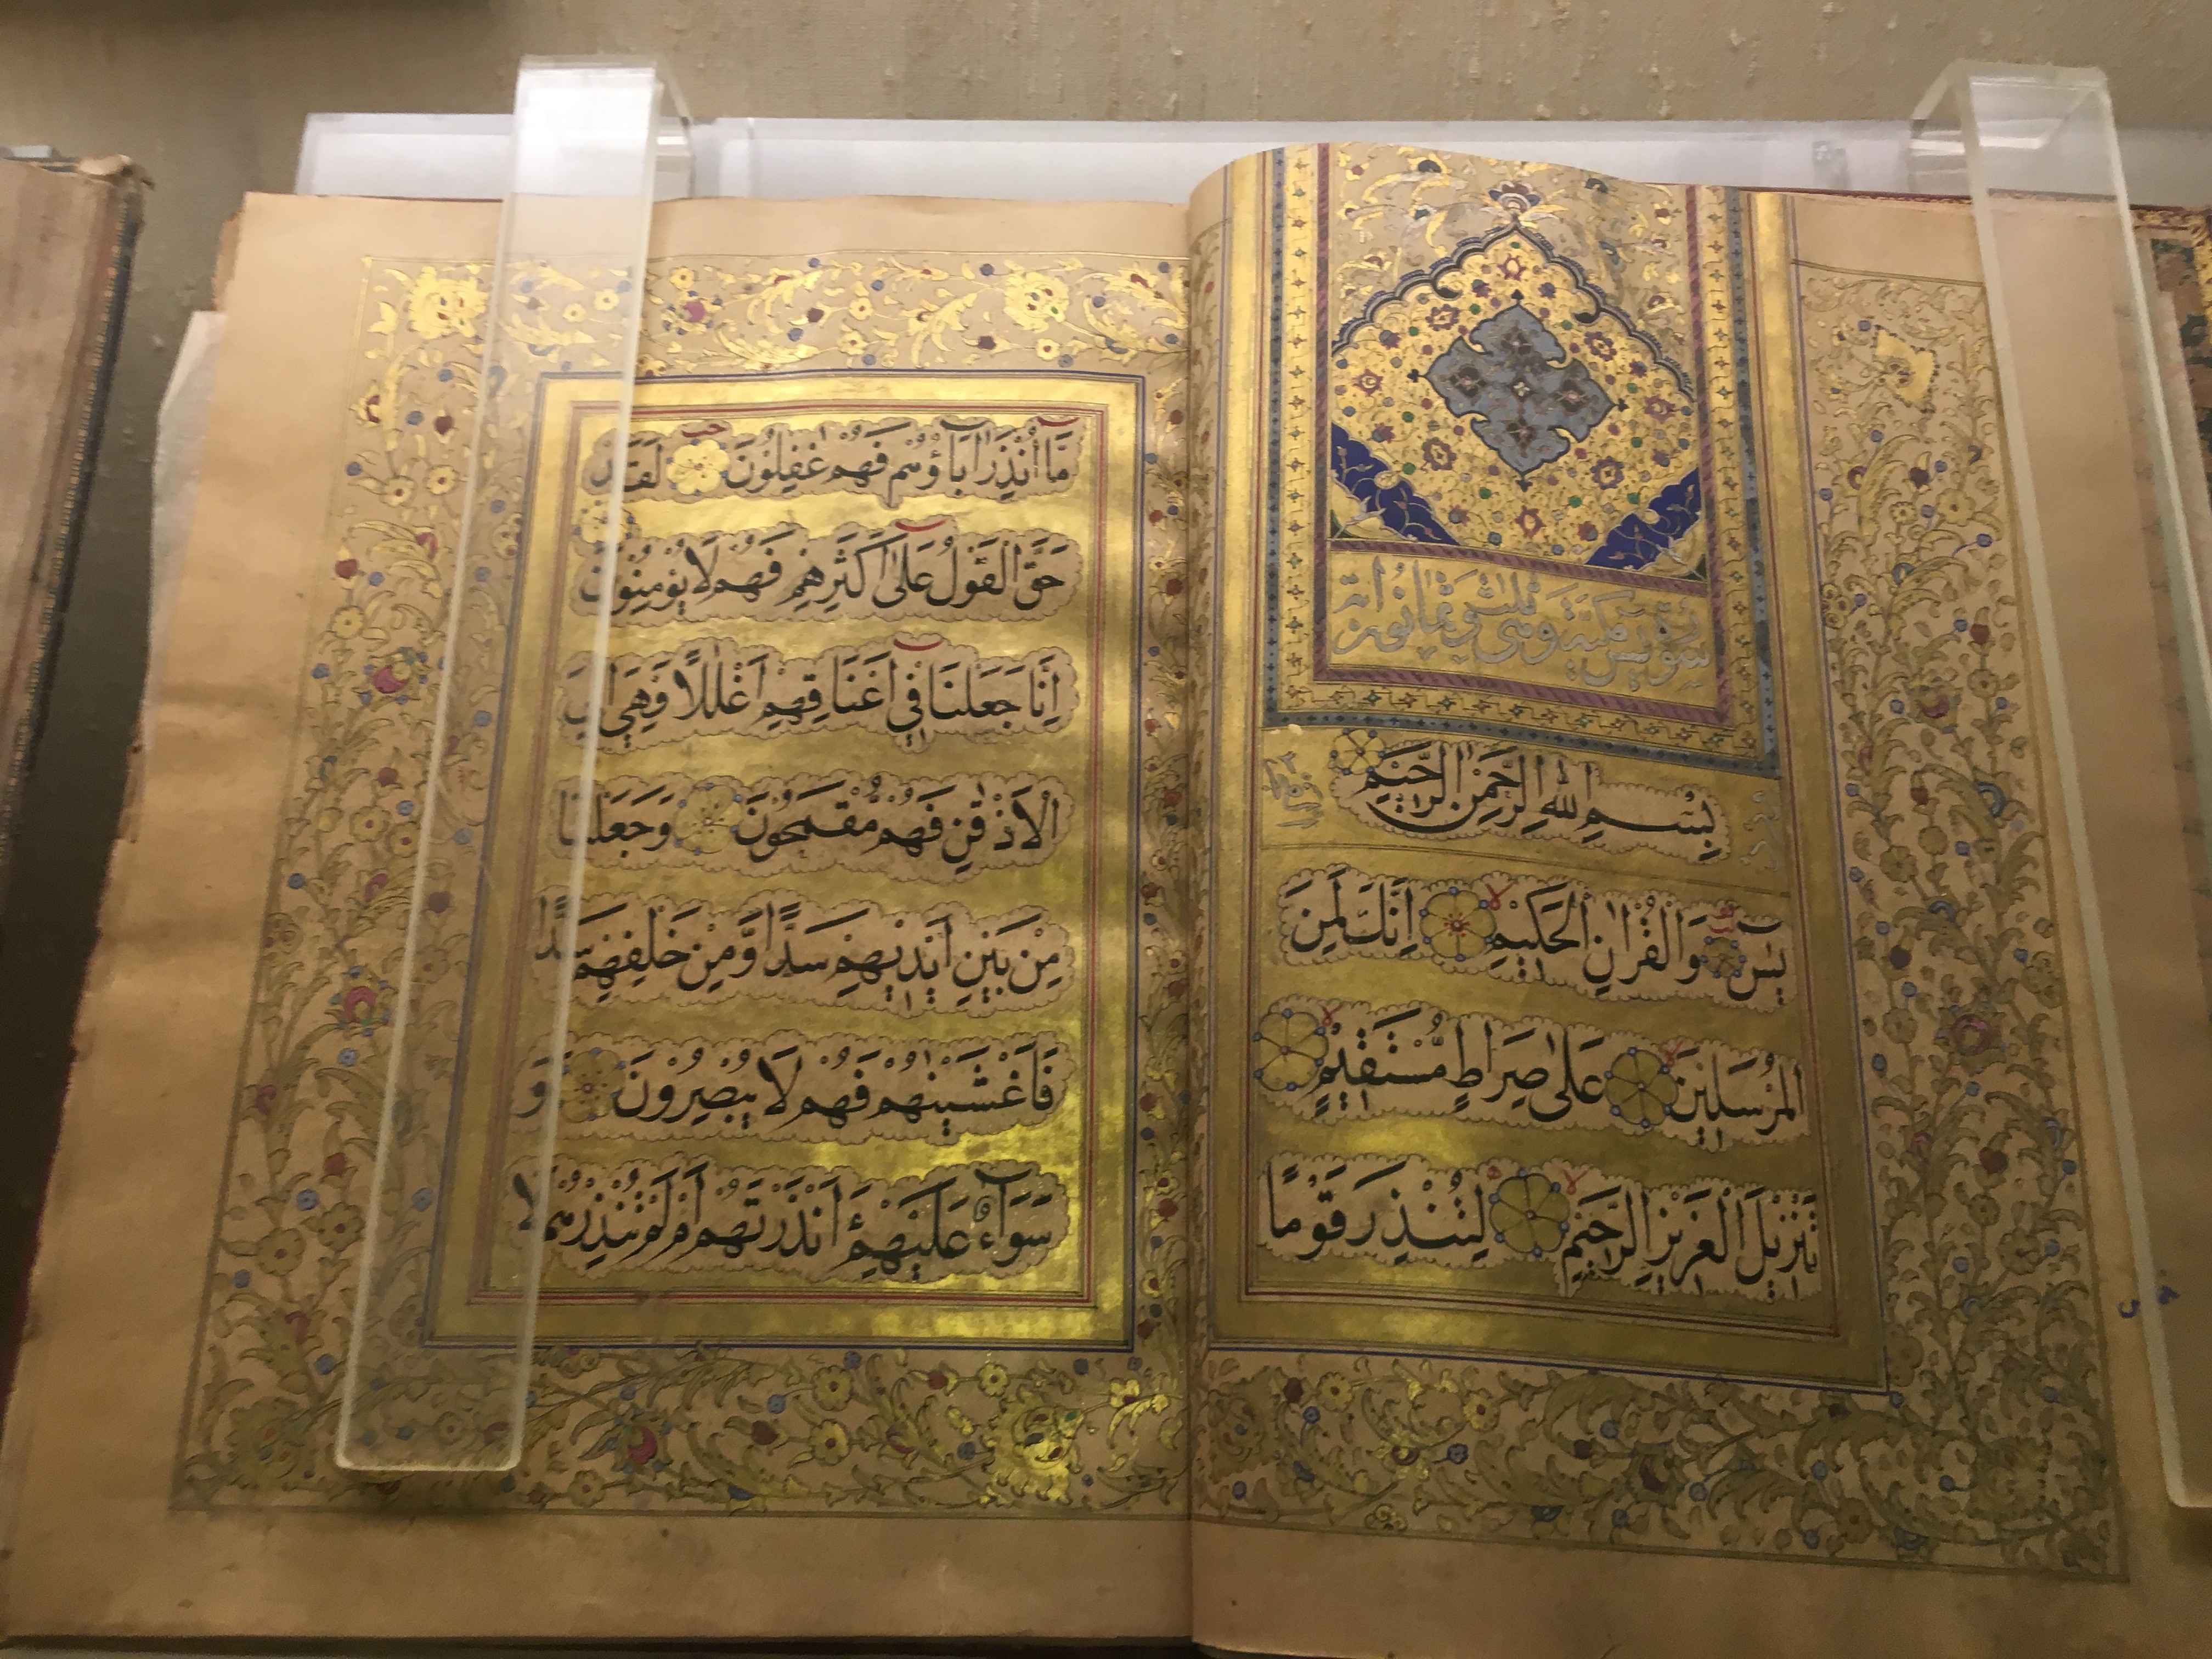 سورة يس مكية وهي ثلث وثمانون اية
بِسْمِ اللهِ الرَّحْمٰنِ الرَّحِيْمِ
يٰسٓ وَالْقُرْاٰنِ الْحَكِيْمِ اِنَّكَ لَمِنَ
الْمُرْسَلِيْنَ عَلٰى صِرَاطٍ مُّسْتَقِيْمٍ
تَنْزِيْلَ الْعَزِيْزِ الرَّحِيْمِ لِتُنْذِرَ قَوْمًا
مَّآ اُنْذِرَ اٰبَآؤُهُمْ فَهُمْ غٰفِلُوْنَ لَقَدْ
حَقَّ الْقَوْلُ عَلٰٓى اَكْثَرِهِمْ فَهُمْ لَا يُؤْمِنُوْنَ
اِنَّا جَعَلْنَا فِيْٓ اَعْنَاقِهِمْ اَغْلٰلًا فَهِيَ اِلَى
الْاَذْقَانِ فَهُمْ مُّقْمَحُوْنَ وَجَعَلْنَا
مِنْۢ بَيْنِ اَيْدِيْهِمْ سَدًّا وَّمِنْ خَلْفِهِمْ سَدًّا
فَاَغْشَيْنٰهُمْ فَهُمْ لَا يُبْصِرُوْنَ وَ
سَوَآءٌ عَلَيْهِمْ ءَاَنْذَرْتَهُمْ اَمْ لَمْ تُنْذِرْهُمْ لَا